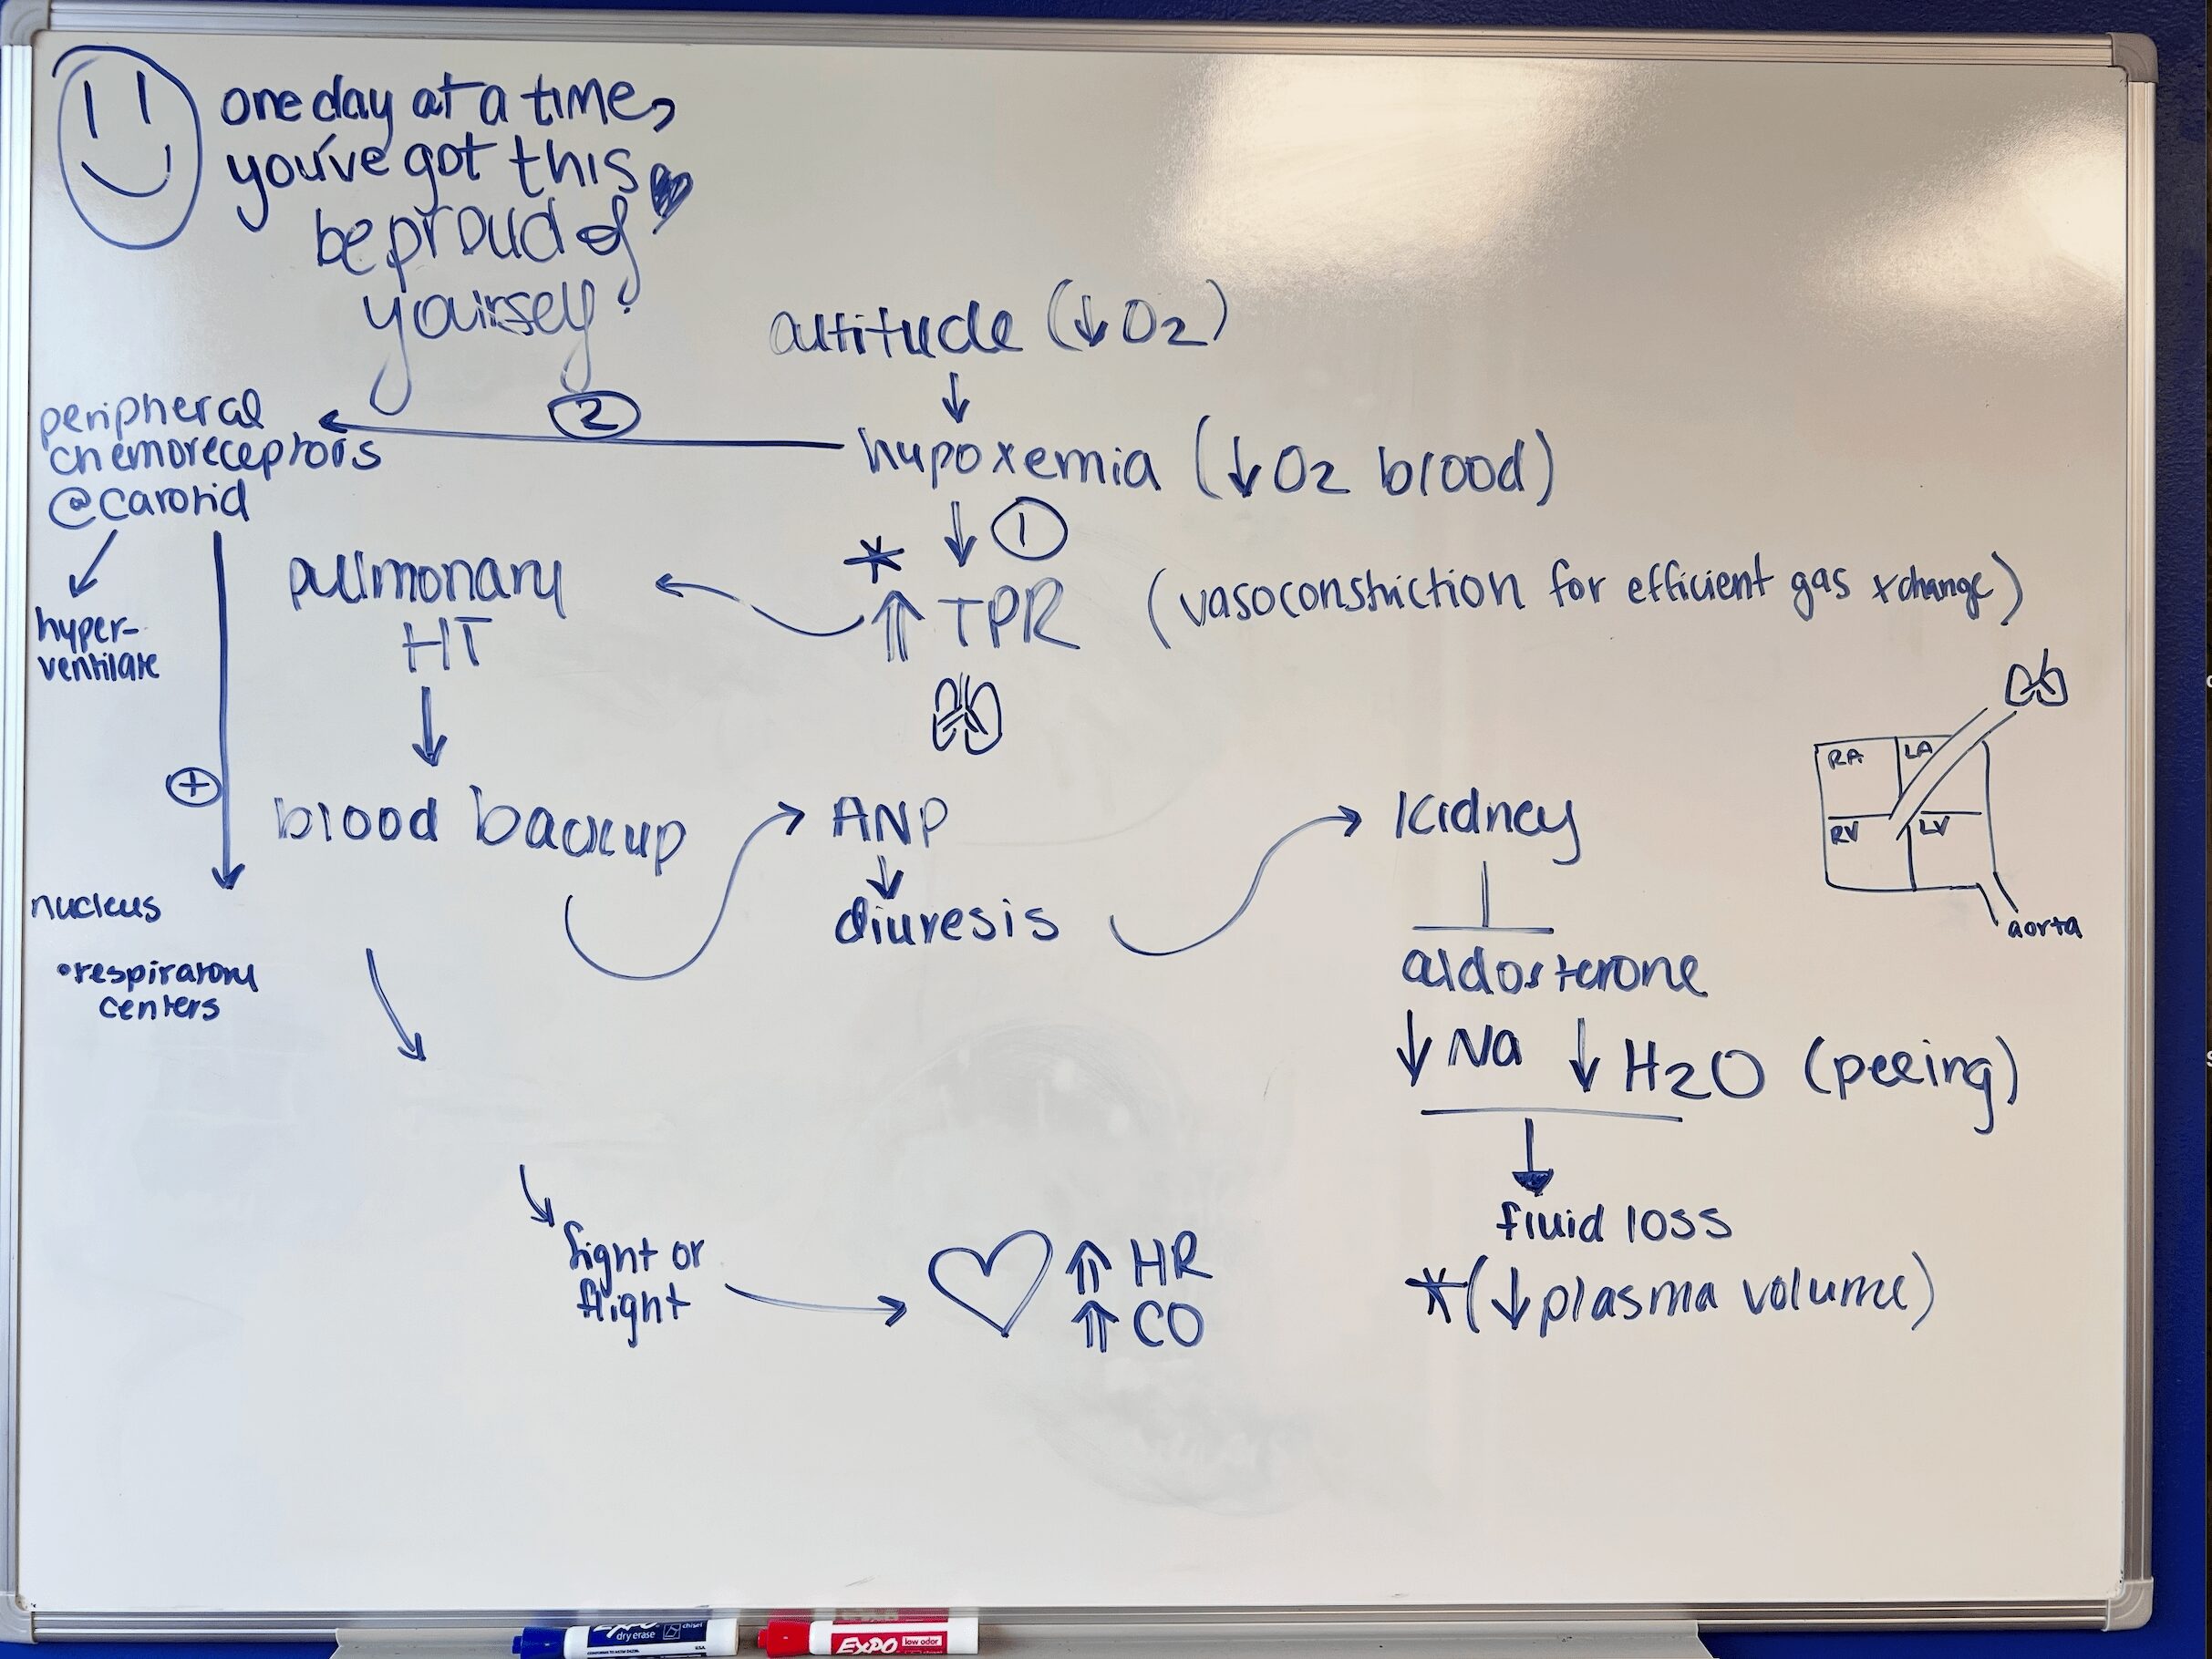 one day at a time,
you've got this
be proud of
yourself!
altitude (↓O2)
↓
hypoxemia (↓O2 blood)
2
peripheral
chemoreceptors
@carotid
↓ 1
* ⇑ TPR (vasoconstriction for efficient gas xchange)
pulmonary
HT
hyper-
ventilate
+
blood backup
ANP
↓
diuresis
Kidney
RA LA
RV LV
aorta
nucleus
•respiratory
centers
aldosterone
↓ Na ↓ H2O (peeing)
fluid loss
*(↓plasma volume)
fight or
flight
⇑ HR
⇑ CO
EXPO
dry erase
chisel
USA
EXPO
low odor